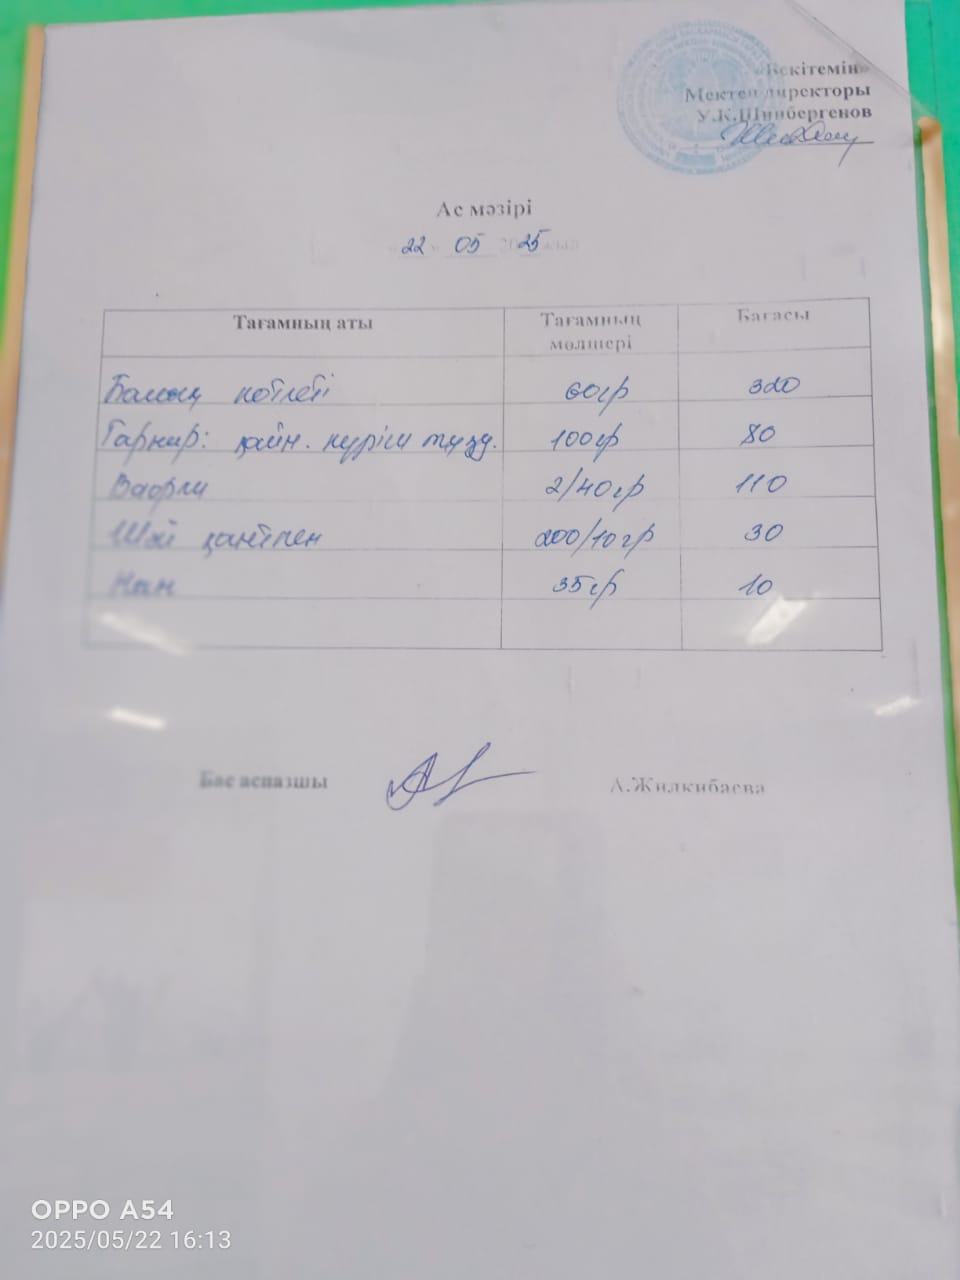 «Бекітемін»
Мектеп директоры
У.К.Шинбергенов
Ас мәзірі
22 05 2025
Тағамның аты Тағамның мөлшері Бағасы
Балық котлеті 60гр 320
Гарнир: қайн. күріш тұзд. 100гр 80
Вафли 2/40гр 110
Шәй қантпен 200/10гр 30
Нан 35гр 10
Бас аспазшы А.Жилкибаева
OPPO A54
2025/05/22 16:13